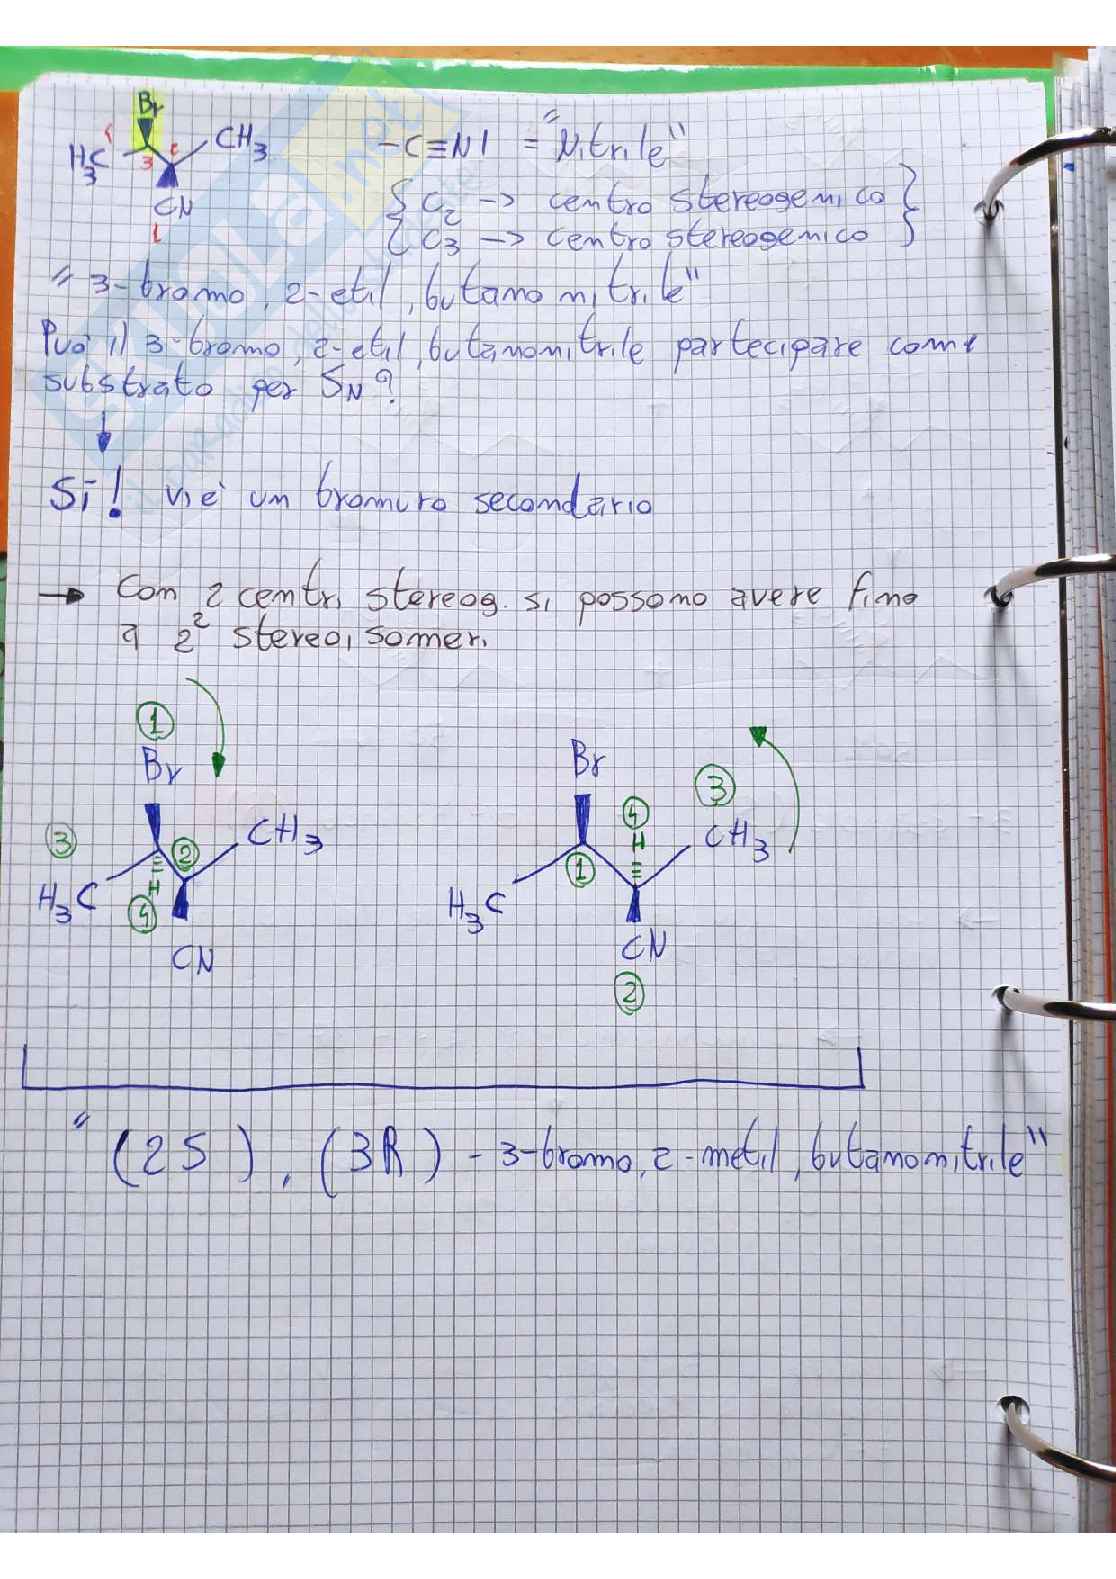 Br
H3C 4 3 2 CH3 -C≡N| = "Nitrile"
CN
1
{ C2 -> centro stereogenico }
{ C3 -> centro stereogenico }
" 3-bromo, 2-etil, butanonitrile"
Può il 3-bromo, 2-etil, butanonitrile partecipare come
substrato per SN?
↓
Sì! Vi è un bromuro secondario
→ Con 2 centri stereog. si possono avere fino
a 2² stereoisomeri.
1
Br
3
2
CH3
H3C
H
4
CN
Br
3
4
H
CH3
1
H3C
CN
2
" (2S), (3R) - 3-bromo, 2-metil, butanonitrile"